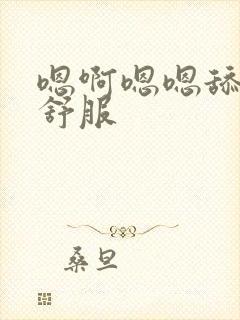 嗯啊嗯嗯舔
舒服
桑旦